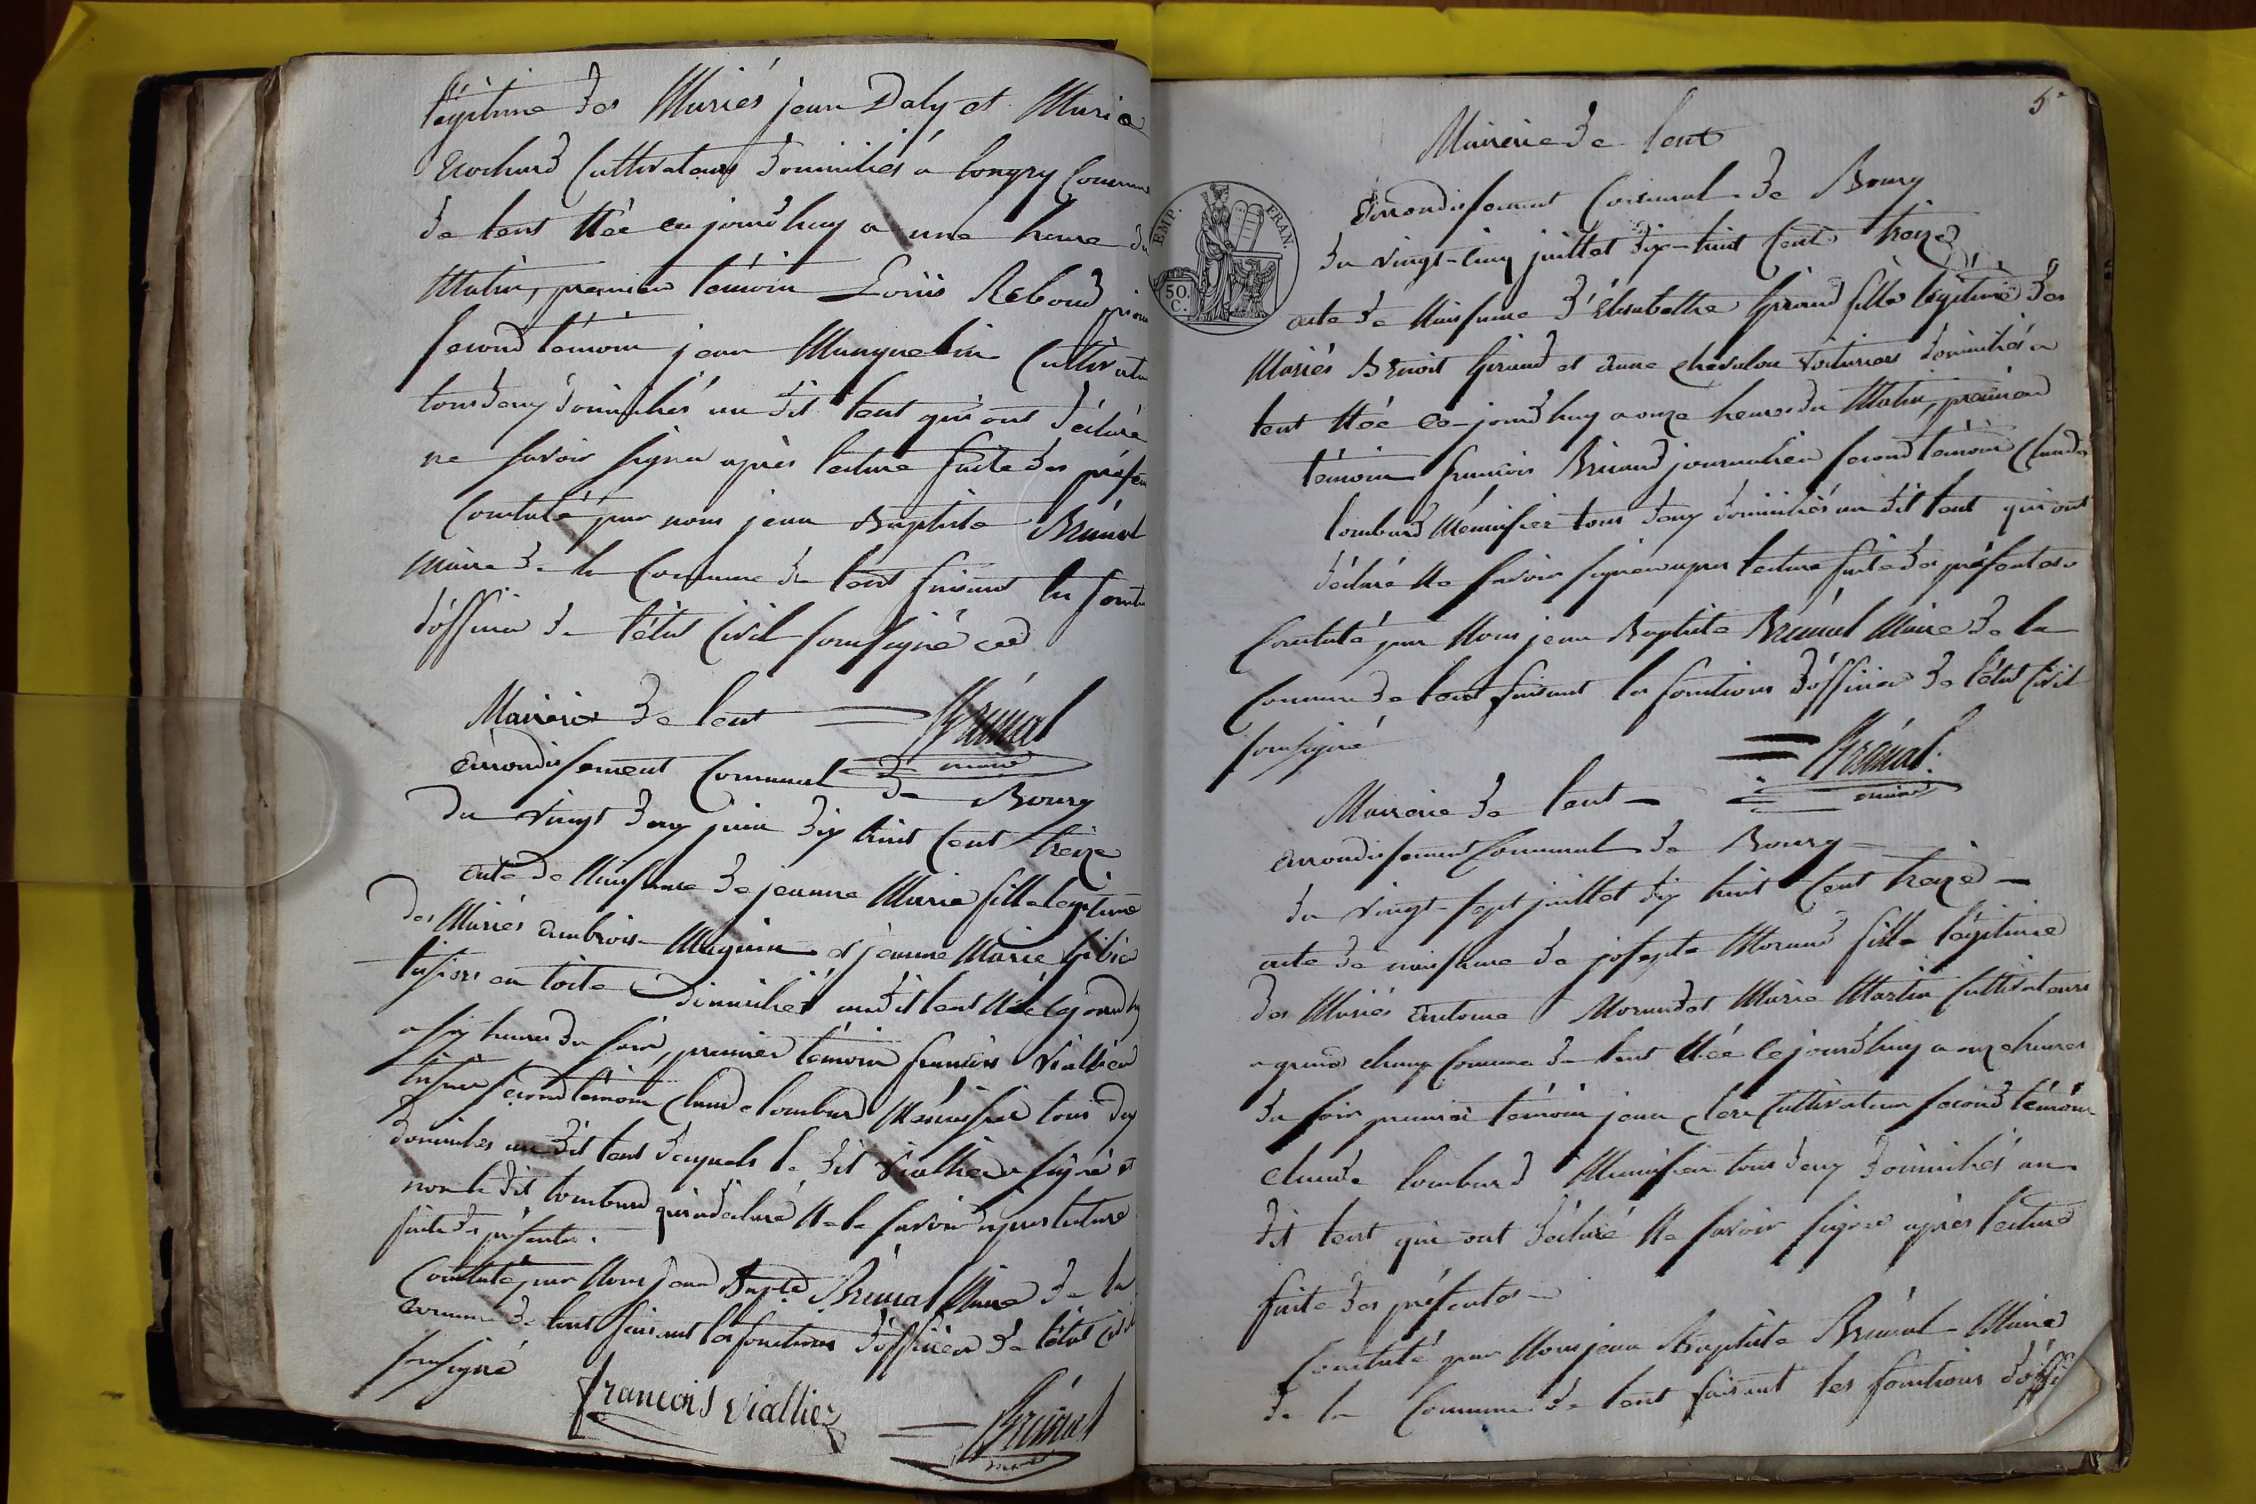 légitime des Mariés jean Daly et Marie
Cultivateurs domiciliés a longry Commune
de lent Née ce jourd'huy a une heure du
Matin, premier témoin Loüis Reboud
second témoin jean Manguelin Cultivate
tous deux domiciliés au dit lent qui ont déclaré
ne savoir signer après lecture faite des présen
Constaté par nous jean Baptiste Brünal
maire de la Commune de lent faisant les foncti
d'officier de l'état Civil soussigné
Mairie de lent
arrondissement Communal de Bourg
du vingt deux juin dix huit Cent treize
acte de Naissance de jeanne Marie fille légitime
des Mariés ambrois Maguin et jeanne Marie
tisseurs en toile domiciliés audit lent Née ce jourd'huy
a six heures du soir, premier témoin francois Viallier
tisseur second témoin Claude lombard Menuisier tous deux
domiciliés au dit lent desquels le dit Viallier a signé et
non le dit lombard qui a déclaré Ne le savoir apres lecture
faite des présentes.
Constaté par Nous jean Bapte Brünal Maire de la
commune de lent faisant les fonctions d'officier de l'état Civil
soussigné
francois vialliez
Brünal
maire
5e
Mairie de lent
EMP. FRAN.
50. C.
arrondissement Communal de Bourg
du vingt-cinq juillet dix-huit Cent treize
acte de Naissance d'Elisabethe Giraud fille légitime des
Mariés Benoit Giraud et anne chevalon Voituriers domiciliés a
lent Née ce-jourd'huy a onze heures du Matin, premier
témoin francois Brivaud journalier second témoin Claude
lombard Menuisier tous deux domiciliés au dit lent qui ont
déclaré Ne savoir signer apres lecture faite des présentes
Constaté par Nous jean Baptiste Brünal Maire de la
Commune de lent faisant les fonctions d'officier de l'état Civil
soussigné
Brünal
maire
Mairie de lent
arrondissement Communal de Bourg
du vingt-sept juillet dix huit Cent treize
acte de naissance de josephte Morand fille légitime
des Mariés antoine Morand et Marie Martin Cultivateurs
a grand champ Commune de lent Née ce jourd'huy a onze heures
du soir premier témoin jean Cultivateur second témoin
claude lombard Menuisier tous deux domiciliés au
dit lent qui ont déclaré Ne savoir signer après lecture
faite des présentes
Constaté par Nous jean Baptiste Brünal Maire
de la Commune de lent faisant les fonctions d'offi